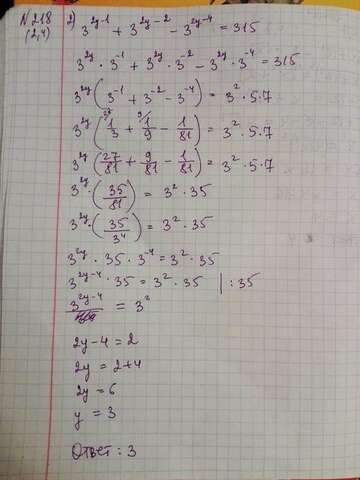 N218 2) 3^{2y-1} + 3^{2y-2} - 3^{2y-4} = 315
(2,4)
3^{2y} · 3^{-1} + 3^{2y} · 3^{-2} - 3^{2y} · 3^{-4} = 315
3^{2y} (3^{-1} + 3^{-2} - 3^{-4}) = 3^2 · 5 · 7
3^{2y} (^{27} 1/3 + ^{9} 1/9 - 1/81) = 3^2 · 5 · 7
3^{2y} (27/81 + 9/81 - 1/81) = 3^2 · 5 · 7
3^{2y} · (35/81) = 3^2 · 35
3^{2y} · (35/3^4) = 3^2 · 35
3^{2y} · 35 · 3^{-4} = 3^2 · 35
3^{2y-4} · 35 = 3^2 · 35 | : 35
3^{2y-4} = 3^2
2y - 4 = 2
2y = 2+4
2y = 6
y = 3
Ответ: 3